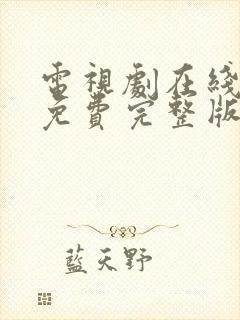 電視劇在綫
免費完整版
藍天野